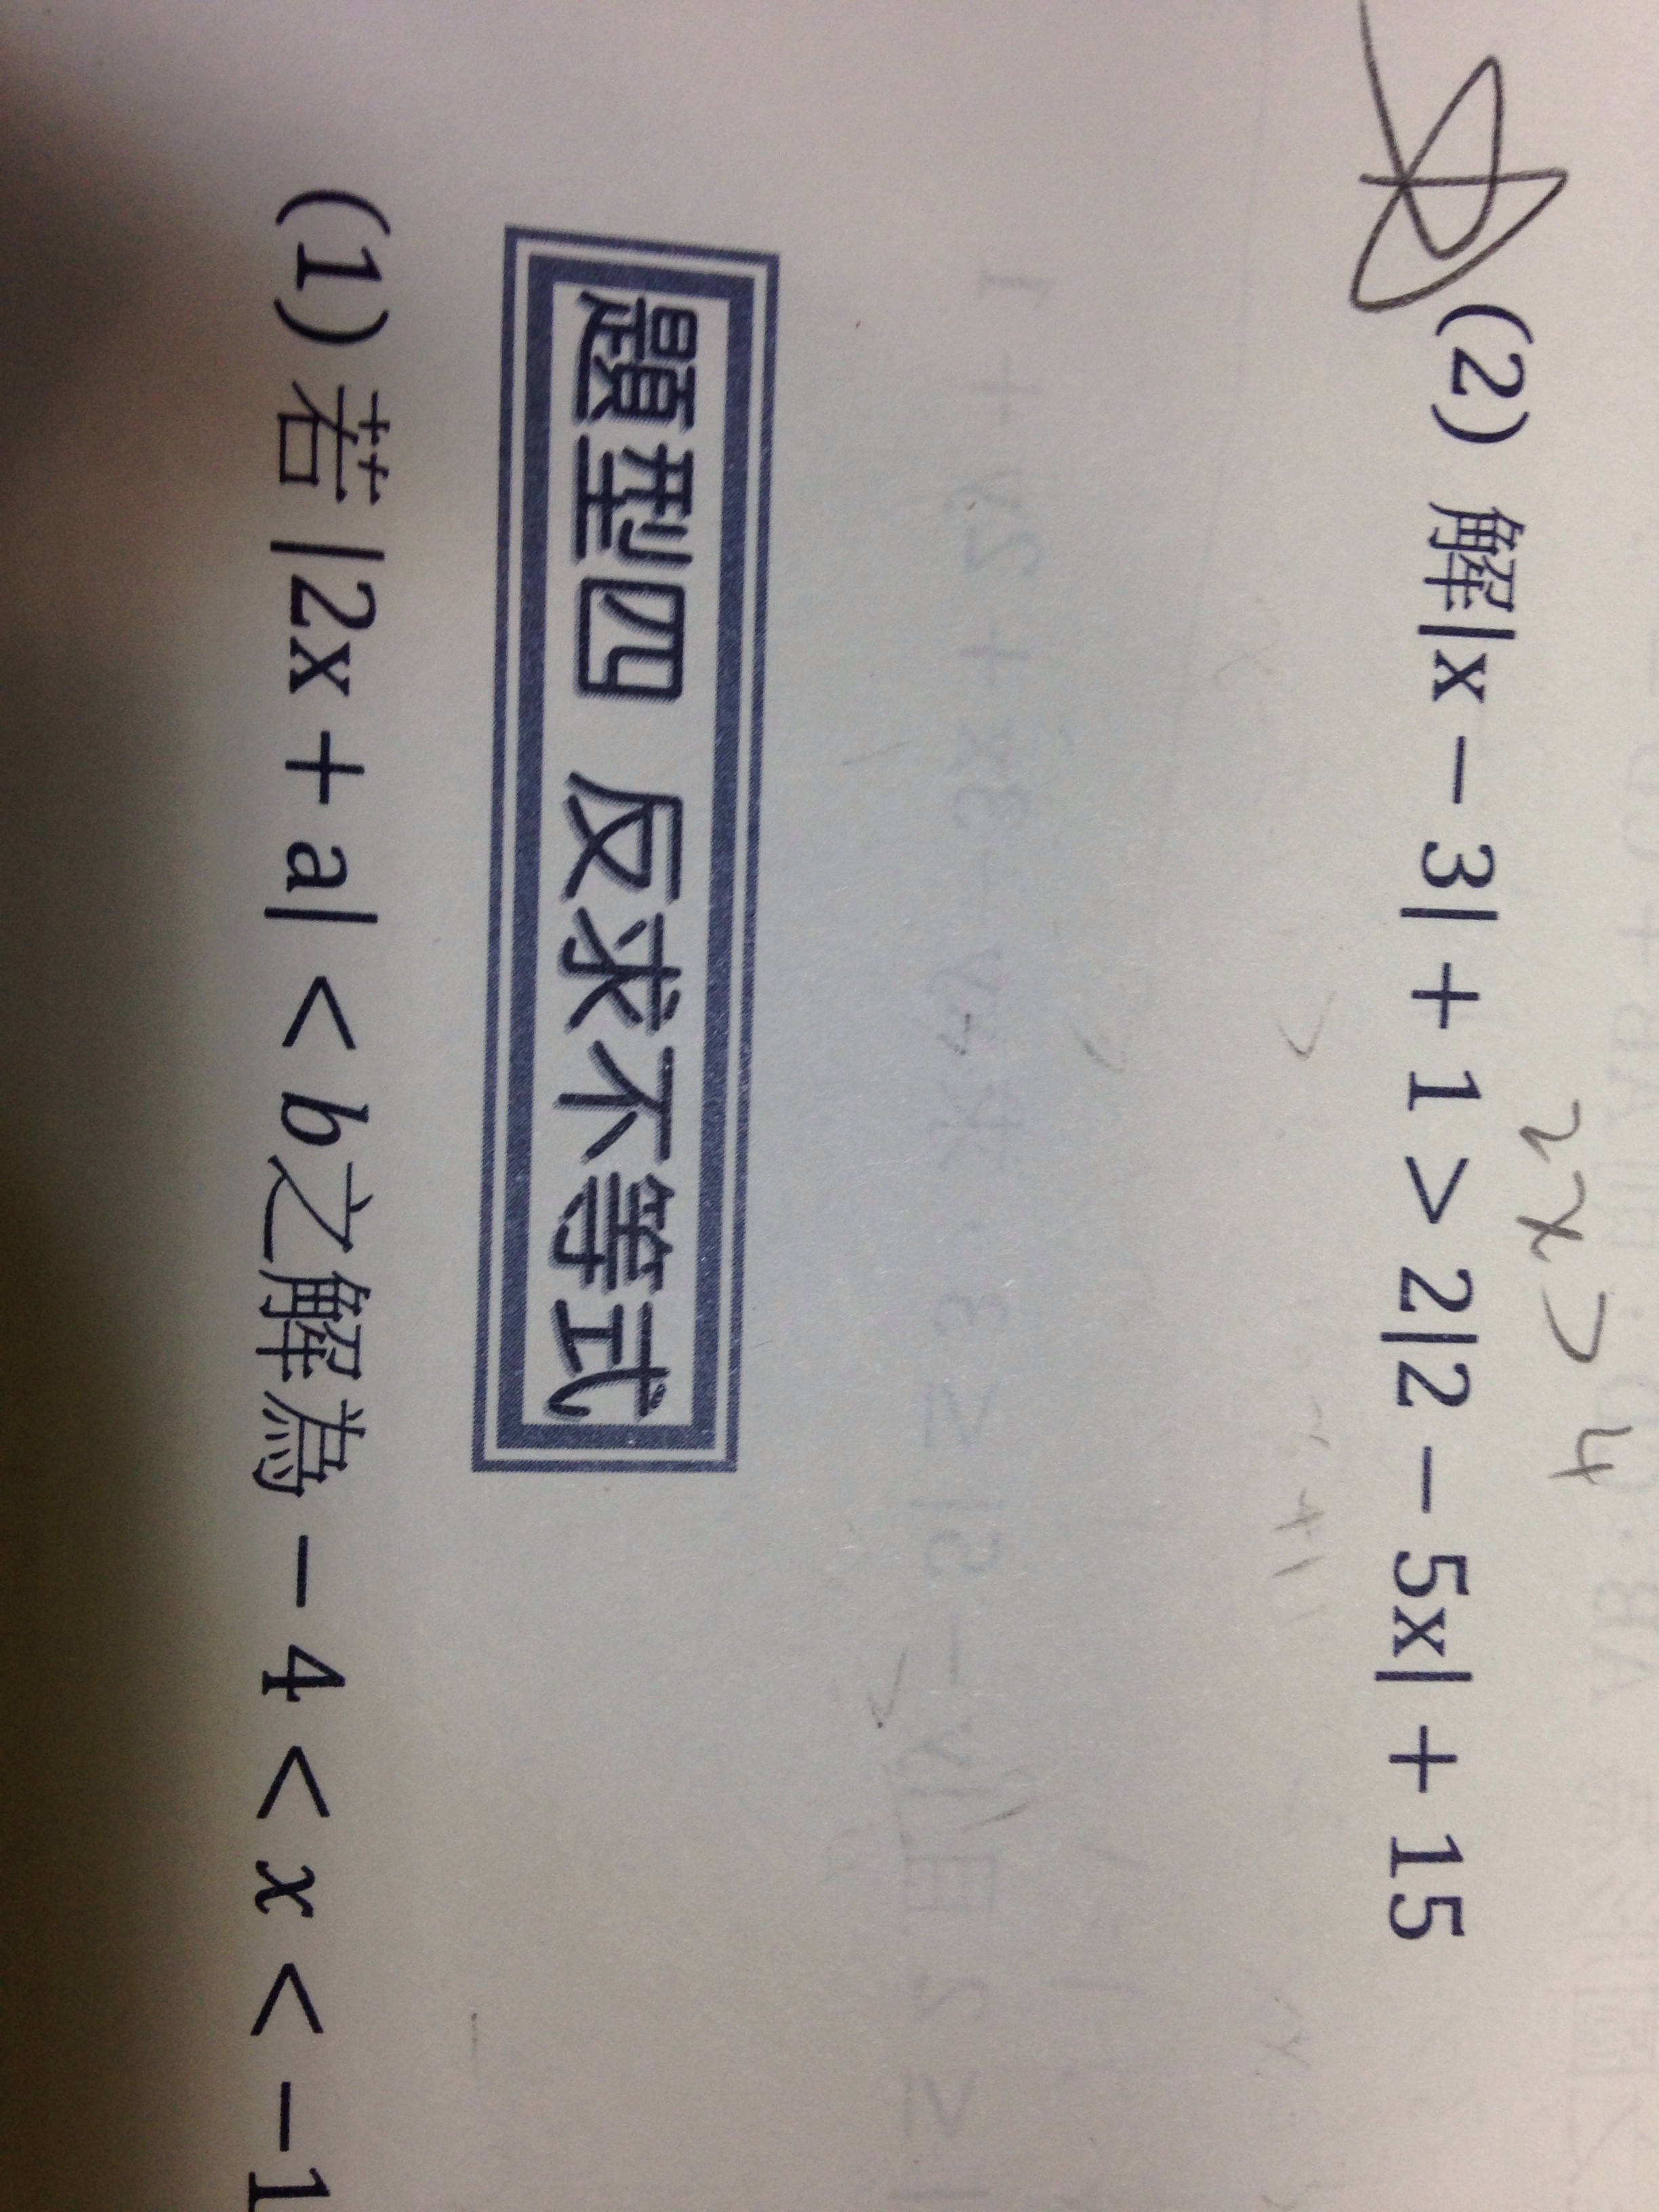 2x > 4
(2) 解|x − 3| + 1 > 2|2 − 5x| + 15
題型四 反求不等式
(1) 若 |2x + a| < b之解為 − 4 < x < −1